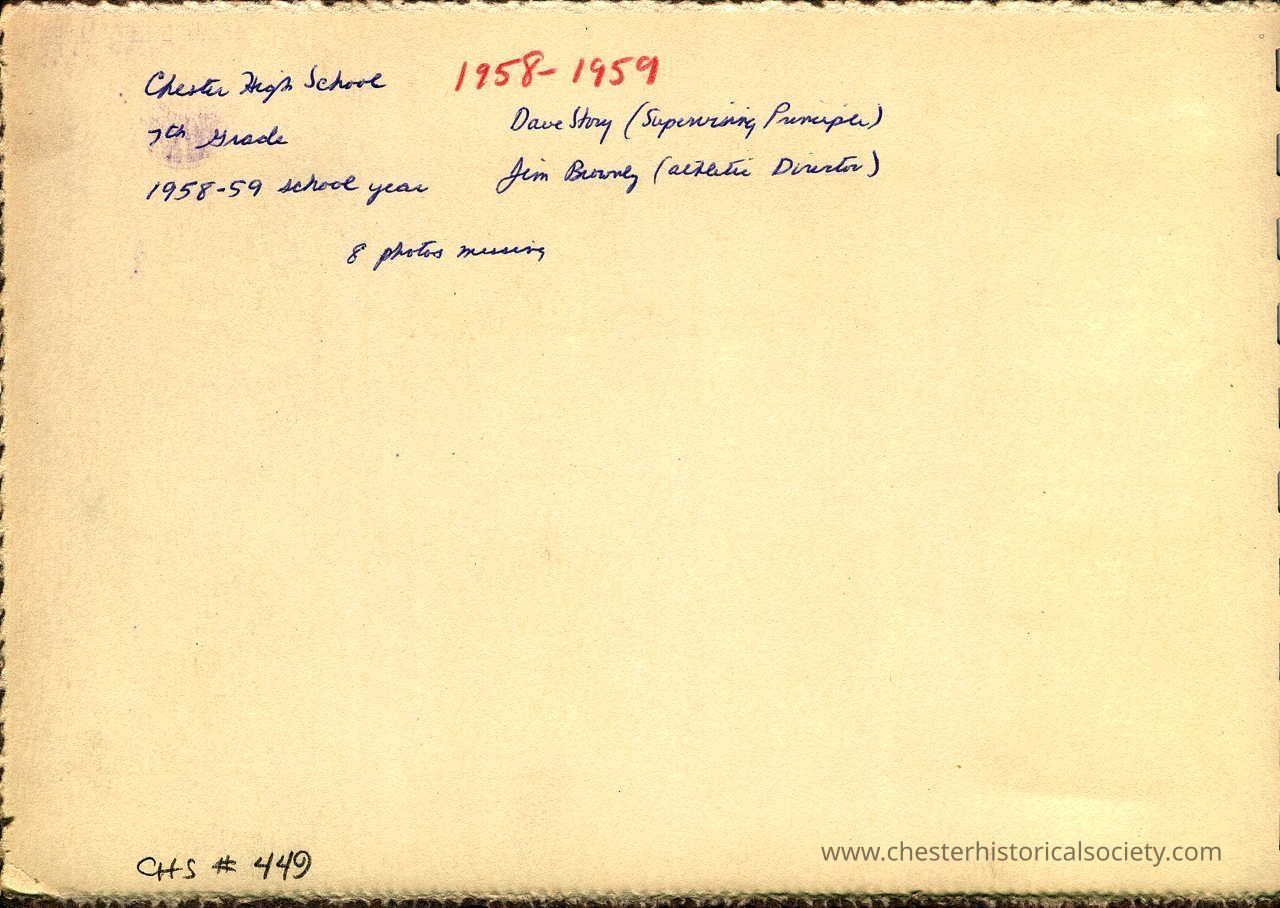 Chester High School
1958-1959
7th Grade
Dave Story (Supervising Principle)
1958-59 school year
Jim (athletic Director)
8 photos missing
CHS # 449
www.chesterhistoricalsociety.com